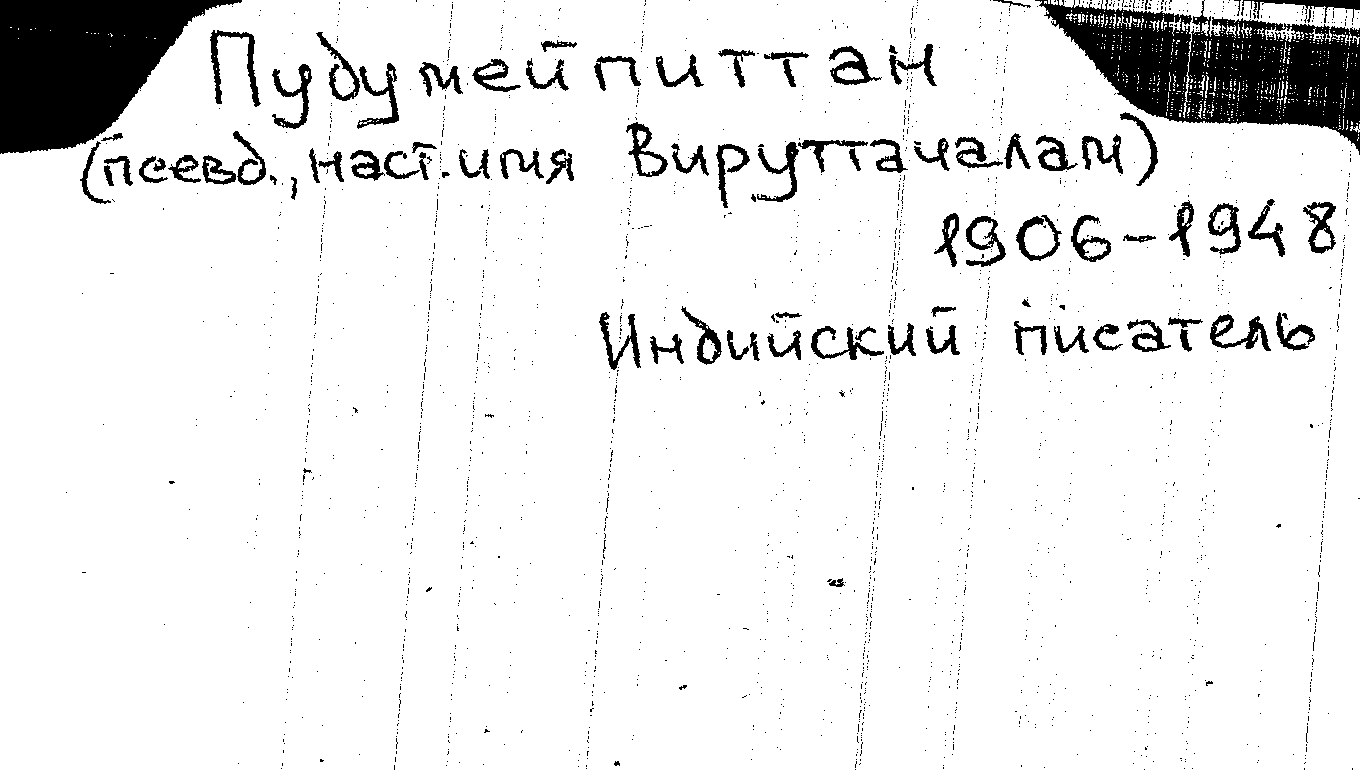 Пудумейпиттан
(псевд., наст. имя Вируттачалам)
1906-1948
Индийский писатель